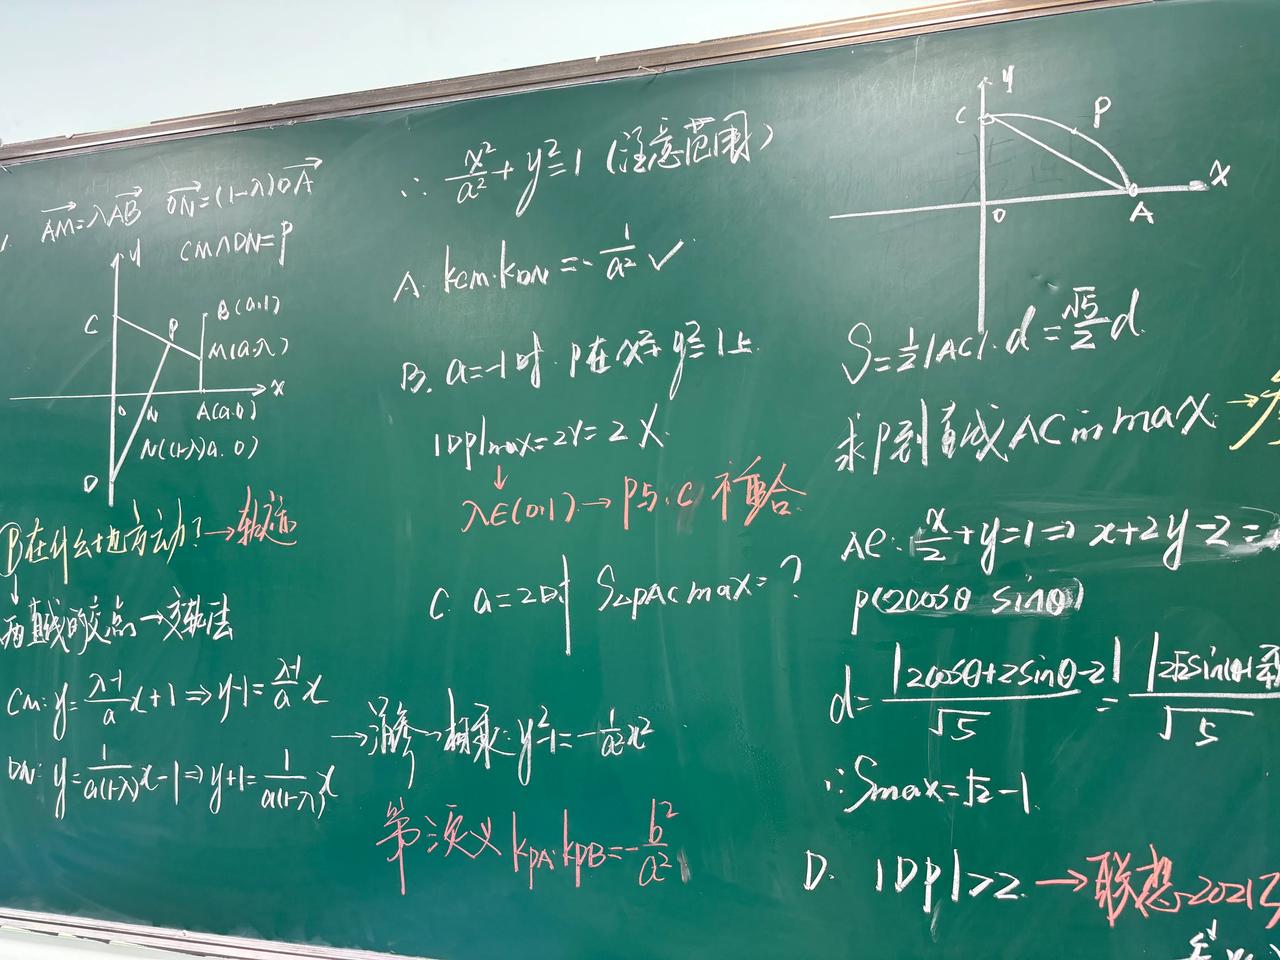 AM=λAB ON=(1-λ)OA
CM∩DN=P
y
C
P
B(a,1)
M(a,λ)
x
O
N
A(a,0)
N((1-λ)a,0)
D
P在什么地方动?→轨迹
↓
两直线的交点→交轨法
CM:y=\frac{λ-1}{a}x+1⇒y-1=\frac{λ-1}{a}x
DN:y=\frac{1}{a(1-λ)}x-1⇒y+1=\frac{1}{a(1-λ)}x
∴\frac{x²}{a²}+y²=1(注意范围)
A. kCM·kDN=-\frac{1}{a²}✓
B. a=-1时.P在x²+y²=1上
|DP|max=2r=2 X
↓
λ∈(0,1)→P与C不重合
C. a=2时 S△PACmax=?
→消参→相乘:y²-1=-\frac{1}{a²}x²
第三定义 kPA·kPB=-\frac{b²}{a²}
y
C
P
x
O
A
S=\frac{1}{2}|AC|·d=\frac{√5}{2}d
求P到直线AC的max→
AC:\frac{x}{2}+y=1⇒x+2y-2=
P(2cosθ sinθ)
d=\frac{|2cosθ+2sinθ-2|}{√5}=\frac{|2√2sin(θ+\frac{π}{4})}{√5}
∴Smax=√2-1
D. |DP|>2→联想2021乙